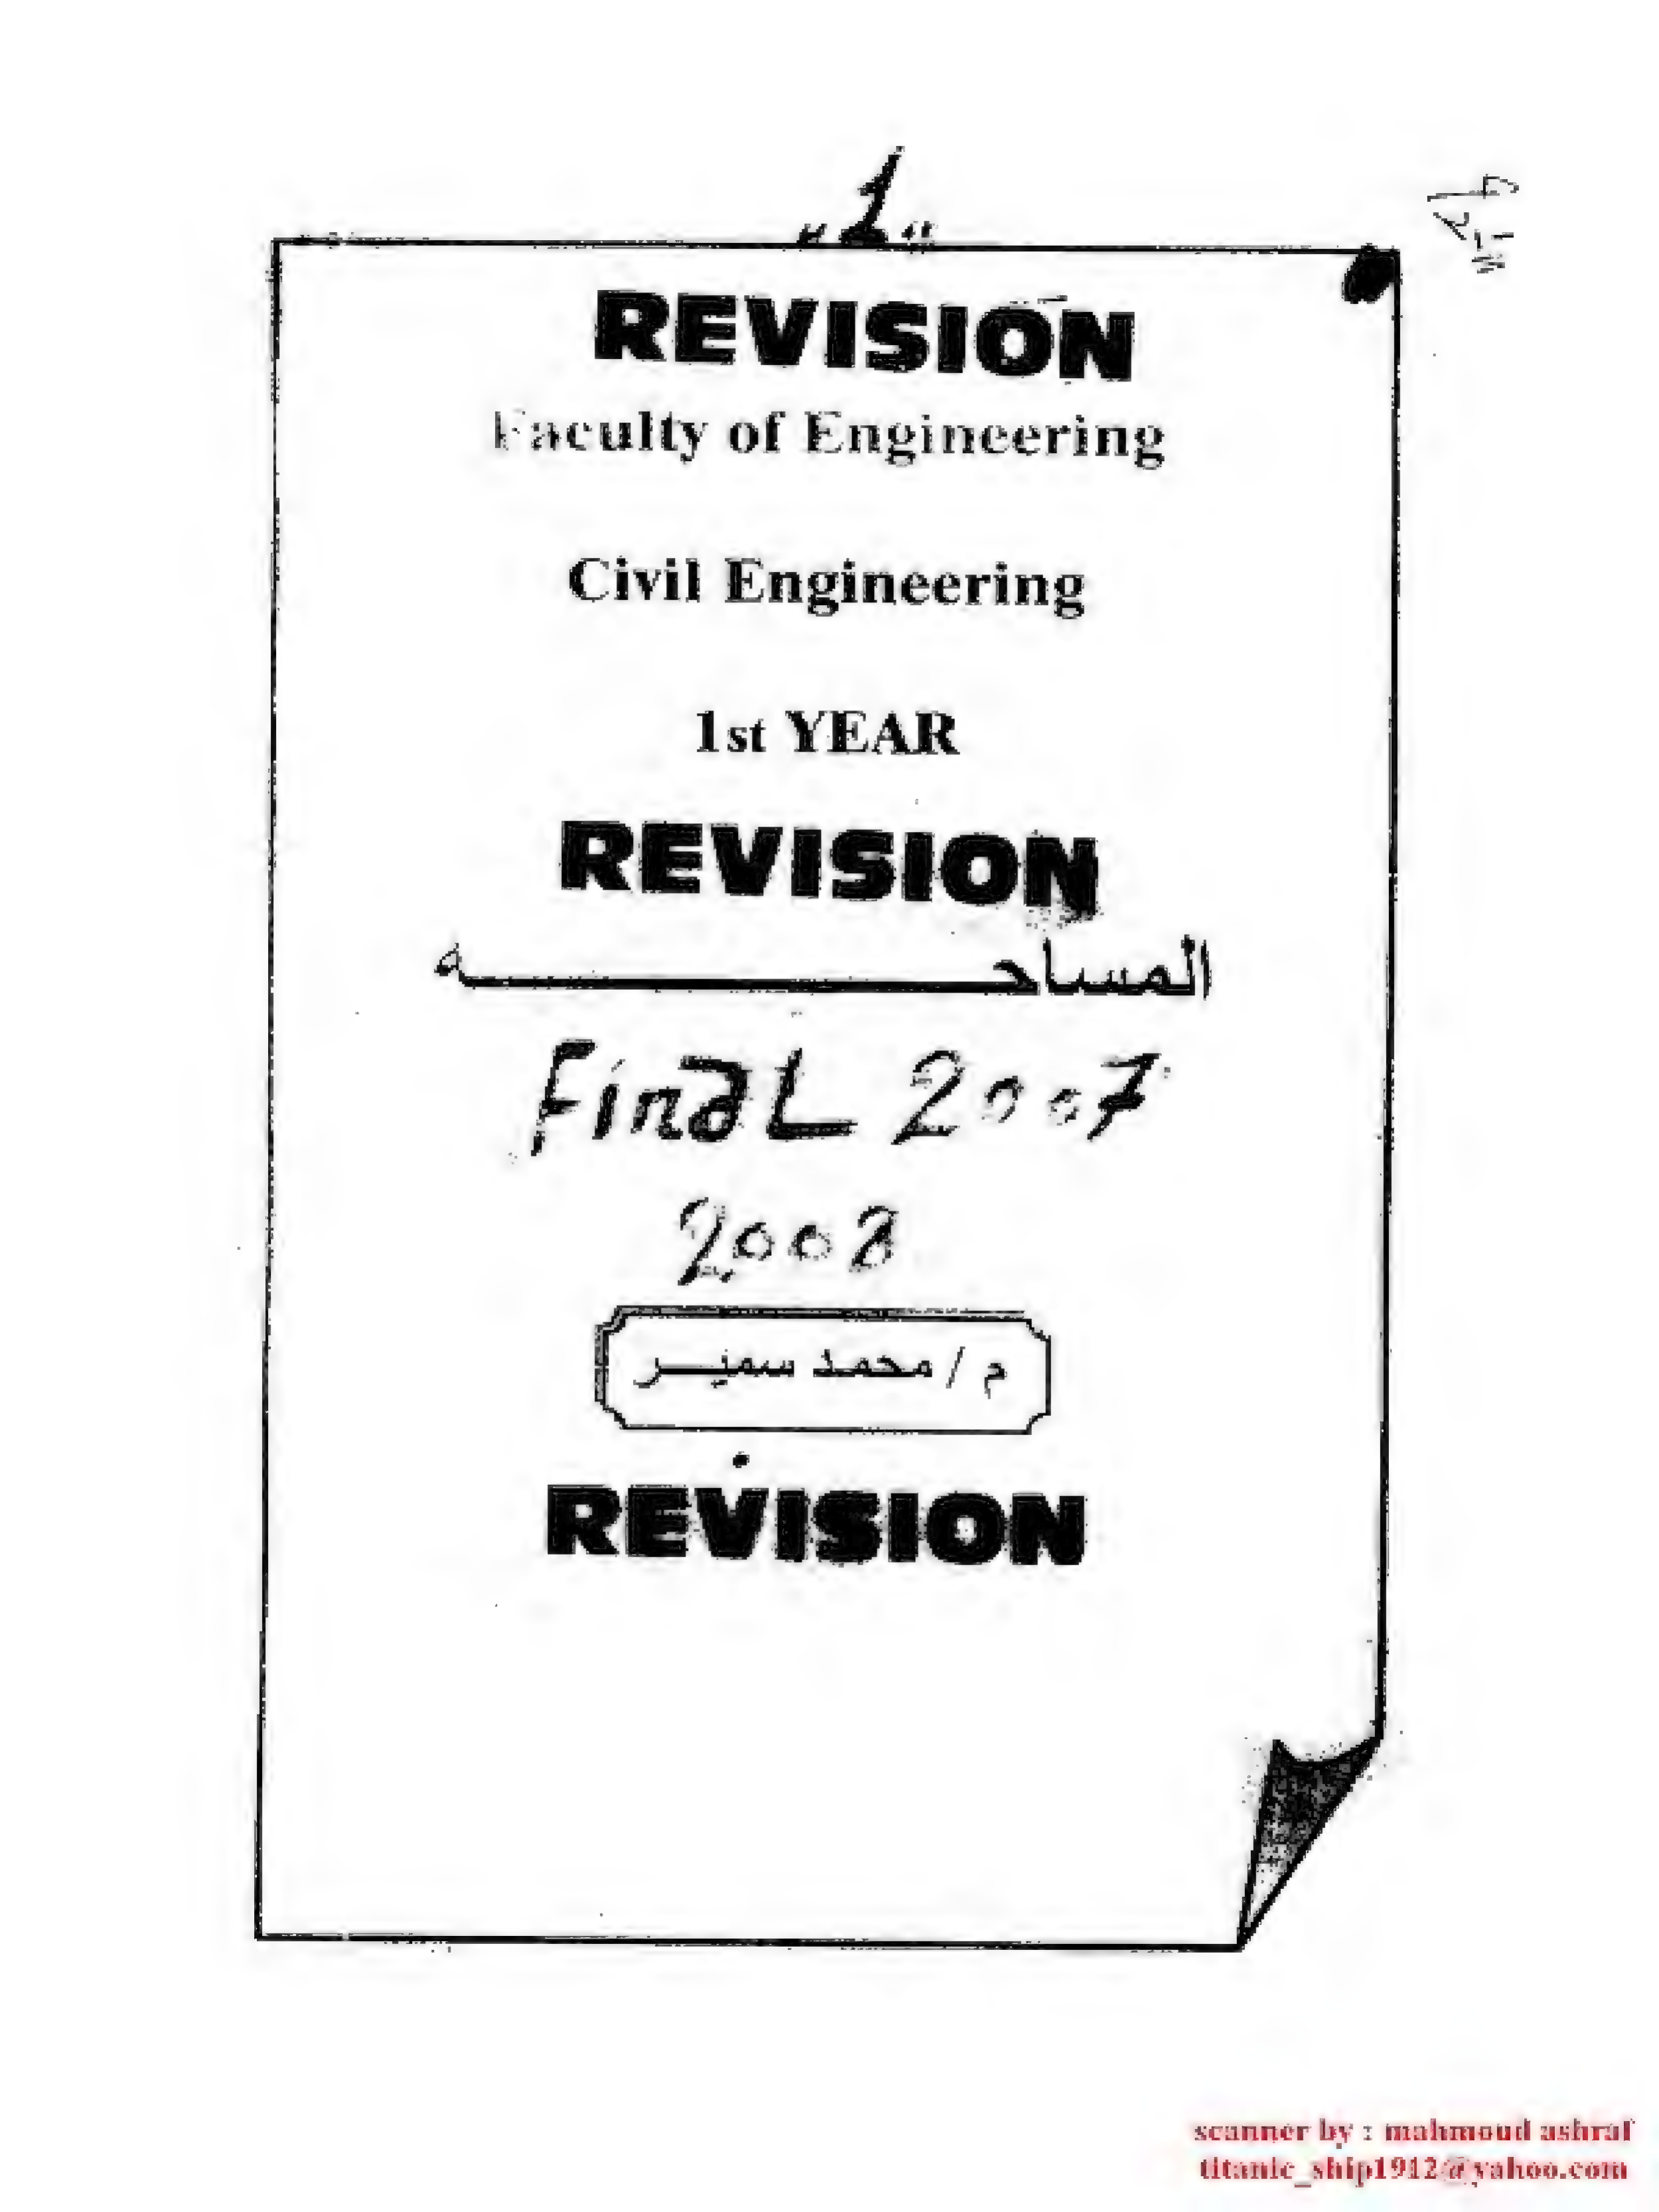 "1"
REVISION
Faculty of Engineering
Civil Engineering
1st YEAR
REVISION
المساحـــــــــــــــه
Final 2007
2008
م / محمد سميـــر
REVISION
scanner by : mahmoud ashraf
titanic_ship1912@yahoo.com